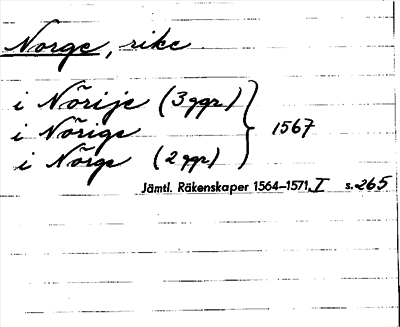 Norge, rike
i Nõrije (3 ggr)
i Nõrige
i Nõrge (2 ggr)
1567
Jämtl. Räkenskaper 1564–1571, I s. 265